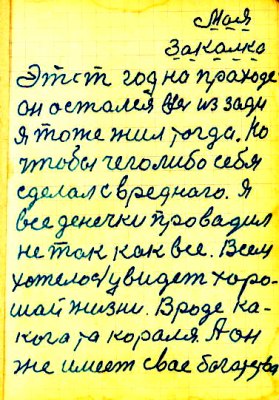 Моя
Закалка
Этст год на праходе
он остался да из зади
я тоже жил тогда. Но
чтобы чеголибо себя
сделал с вреднаго. Я
все денечки провадил
не так как все. Всем
хотелось увидет хоро-
шай жизни. Вроде ка-
кога та кораля. А он
же имеет свае богатства